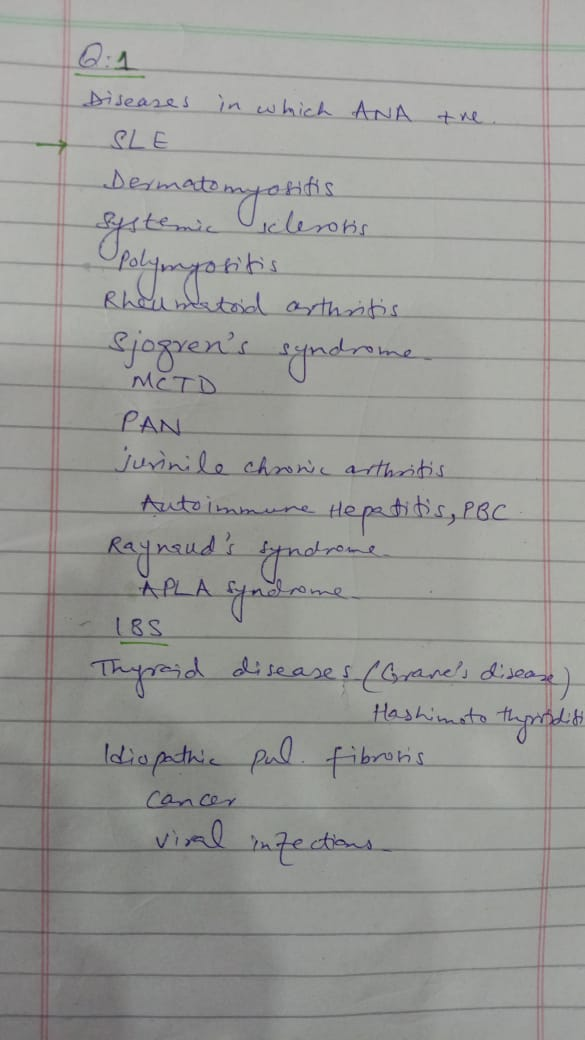 Q:1
Diseases in which ANA +ve.
→ SLE
Dermatomyositis
Systemic sclerosis
Polymyositis
Rheumatoid arthritis
Sjogren's syndrome
MCTD
PAN
jurinile chronic arthritis
Autoimmune Hepatitis, PBC
Raynaud's syndrome
APLA syndrome
IBS
Thyroid diseases (Grave's disease)
Hashimoto thyroiditis
Idiopathic pul. fibrosis
cancer
viral infections